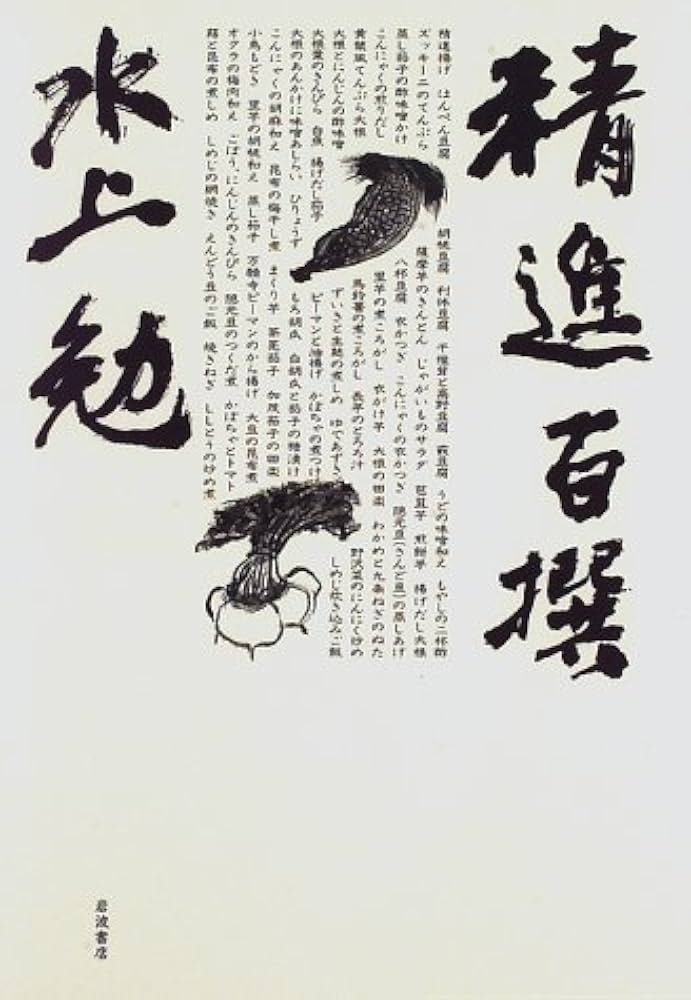 精進百撰
精進揚げ はんぺん豆腐 胡桃豆腐 利休豆腐 干椎茸と高野豆腐 萩豆腐 うどの味噌和え もやしの二杯酢
ズッキーニのてんぷら 薩摩芋のきんとん じゃがいものサラダ 芭蕉芋 煎餅芋 揚げだし大根
蒸し茄子の酢味噌かけ 八杯豆腐 衣かつぎ こんにゃくの衣かつぎ 隠元豆(さんど豆)の蒸しあげ
こんにゃくの煎りだし 里芋の煮ころがし 衣がけ芋 大根の田楽 わかめと九条ねぎのぬた
黄檗風てんぷら大根 馬鈴薯の煮ころがし 長芋のとろろ汁 野沢菜のにんにく炒め
大根とにんじんの酢味噌 ずいきと生麩の煮しめ ゆであずき しめじ炊き込みご飯
大根葉のきんぴら 白魚 揚げだし茄子 ピーマンと油揚げ かぼちゃの煮つけ
大根のあんかけに味噌あしらい ひりょうず もろ胡瓜 白胡瓜と茄子の糟漬け
こんにゃくの胡麻和え 昆布の梅干し煮 まくり芋 茶筅茄子 加茂茄子の田楽
小鳥もどき 里芋の胡桃和え 蒸し茄子 万願寺ピーマンのから揚げ 大豆の昆布煮
オクラの梅肉和え ごぼう、にんじんのきんぴら 隠元豆のつくだ煮 かぼちゃとトマト
蕗と昆布の煮しめ しめじの網焼き えんどう豆のご飯 焼きねぎ ししとうの炒め煮
水上勉
岩波書店